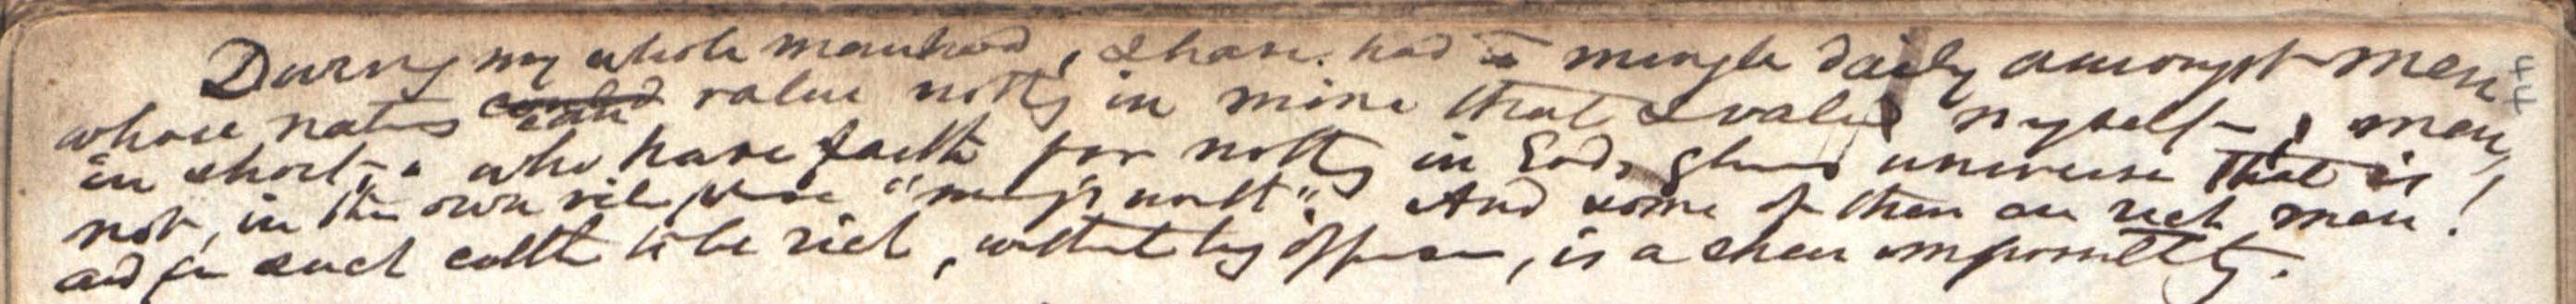 During my whole manhood, I have had to mingle daily amongst men
whose natures could can value nothing in mine that I value myself, men,
in short, who have faith for nothing in God's glorious universe that is
not, in their own vile phrase "money's worth". And some of them are rich men!
and for such cattle to be rich, without being offensive, is a sheer impossibility.